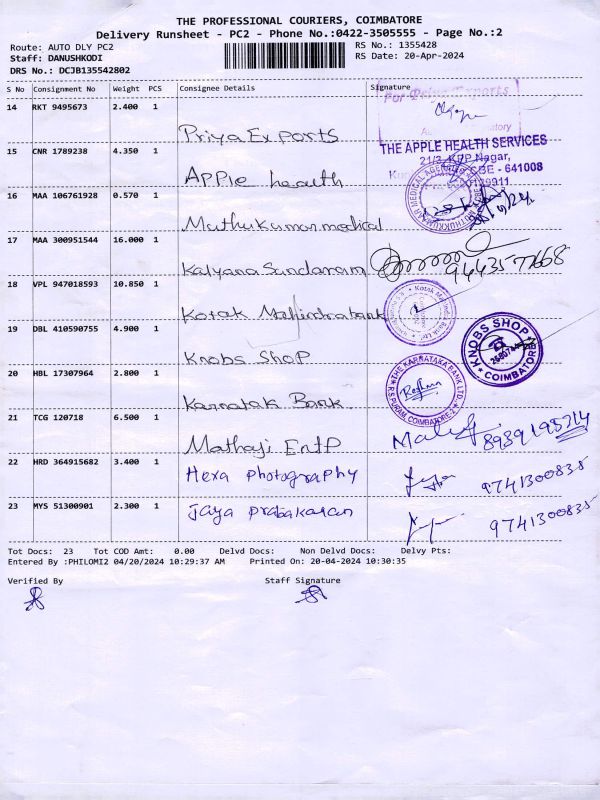 THE PROFESSIONAL COURIERS, COIMBATORE
Delivery Runsheet - PC2 - Phone No.:0422-3505555 - Page No.:2
Route: AUTO DLY PC2
RS No.: 1355428
Staff: DANUSHKODI
RS Date: 20-Apr-2024
DRS No.: DCJB135542802
S No Consignment No Weight PCS Consignee Details Signature
14 RKT 9495673 2.400 1
For Priya Exports
Priya Exports
15 CNR 1789238 4.350 1
THE APPLE HEALTH SERVICES
21/3, KPP Nagar,
CBE - 641008
Apple health
16 MAA 106761928 0.570 1
Muthukumar medical
17 MAA 300951544 16.000 1
Kalyana Sundaram
9443577668
18 VPL 947018593 10.850 1
Kotak Mahindra bank
Kotak Mahindra Bank Ltd.
19 DBL 410590755 4.900 1
Knobs Shop
KNOBS SHOP
COIMBATORE
20 HBL 17307964 2.800 1
Karnatak Bank.
THE KARNATAKA BANK LTD.
R.S. PURAM, COIMBATORE-2
21 TCG 120718 6.500 1
Mathaji EntP
8939195714
22 HRD 364915682 3.400 1
Hexa photography
9741300835
23 MYS 51300901 2.300 1
Jaya prabakaran
9741300835
Tot Docs: 23 Tot COD Amt: 0.00 Delvd Docs: Non Delvd Docs: Delvy Pts:
Entered By :PHILOMI2 04/20/2024 10:29:37 AM Printed On: 20-04-2024 10:30:35
Verified By Staff Signature